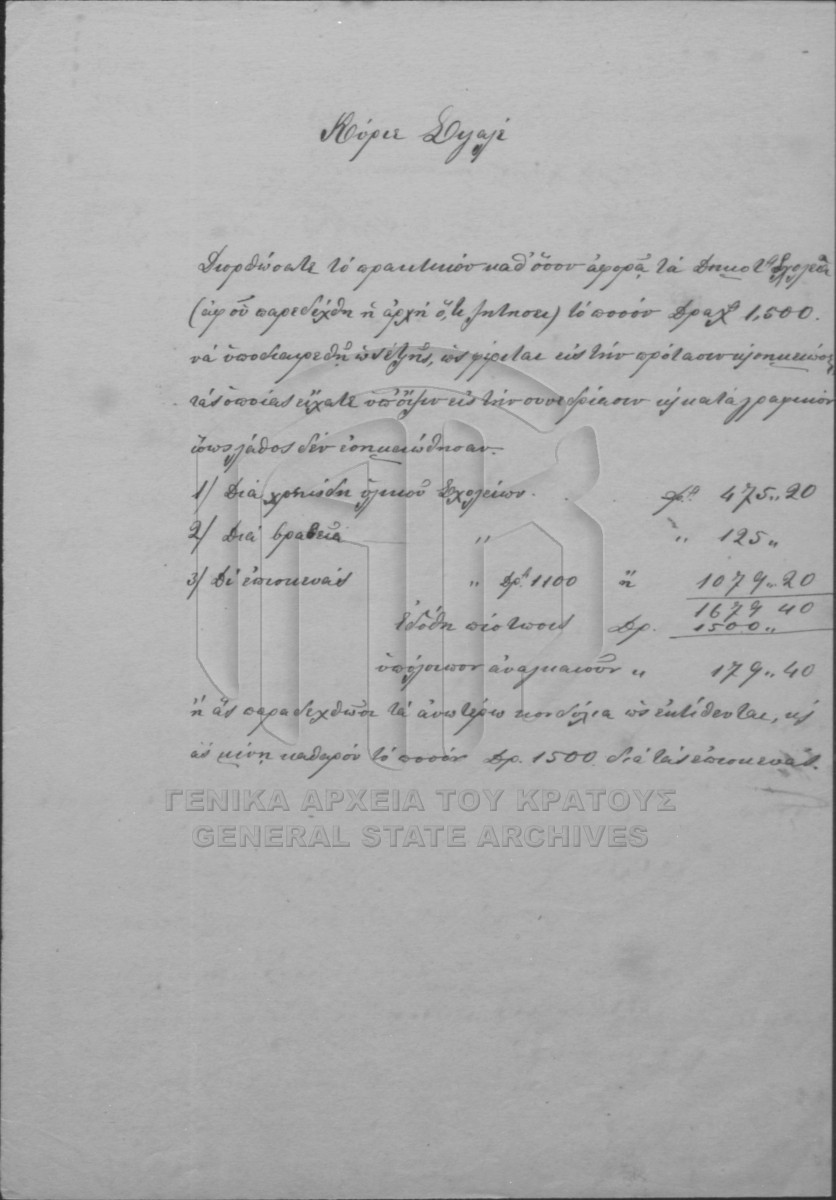 Κύριε
Διορθώσατε τὸ πρακτικὸν καθ' ὅσον ἀφορᾷ τὰ Δημοτ. Σχολεῖα
(ἀφ' οὗ παρεδέχθη ἡ ἀρχὴ ὅ,τι ζητήσει) τὸ ποσὸν Δραχ 1,500.
νὰ ὑποδιαιρεθῇ ὡς ἑξῆς, ὡς φέρεται εἰς τὴν πρότασιν κ σημειώσεις
τὰς ὁποίας εἴχατε ὑπ' ὄψιν εἰς τὴν συνεδρίασιν κ κατὰ γραφικὸν
ἴσως λάθος δὲν ἐσημειώθησαν.
1/ Διὰ χρειώδη ὑλικοῦ Σχολείων. Δρ. 475,,20
2/ Διὰ βραβεῖα ,, ,, 125,,
3/ Δι' ἐπισκευὰς ,, Δρ. 1100 ἢ 1079,,20
1679 40
Ἐδόθη πίστωσις Δρ. 1500,,
ὑπόλοιπον ἀναγκαιοῦν ,, 179,,40
ἢ ἂς παραδεχθῶσι τὰ ἀνωτέρω κονδύλια ὡς ἐκτίθενται, κ
ἂς μένῃ καθαρὸν τὸ ποσὸν Δρ. 1500 διὰ τὰς ἐπισκευάς.
ΓΕΝΙΚΑ ΑΡΧΕΙΑ ΤΟΥ ΚΡΑΤΟΥΣ
GENERAL STATE ARCHIVES